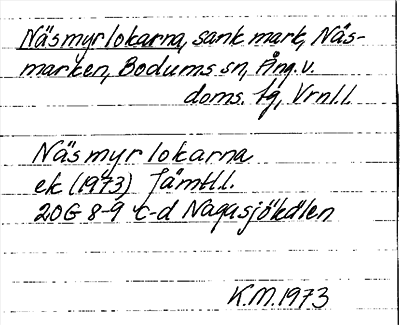 Näsmyrlokarna, sank mark, Näs-
marken, Bodums sn, Ång. v.
doms. fg, Vrnl.l.
Näsmyrlokarna
ek (1973) Jämtl.l.
20G 8-9 c-d Nagasjökölen
K.M. 1973